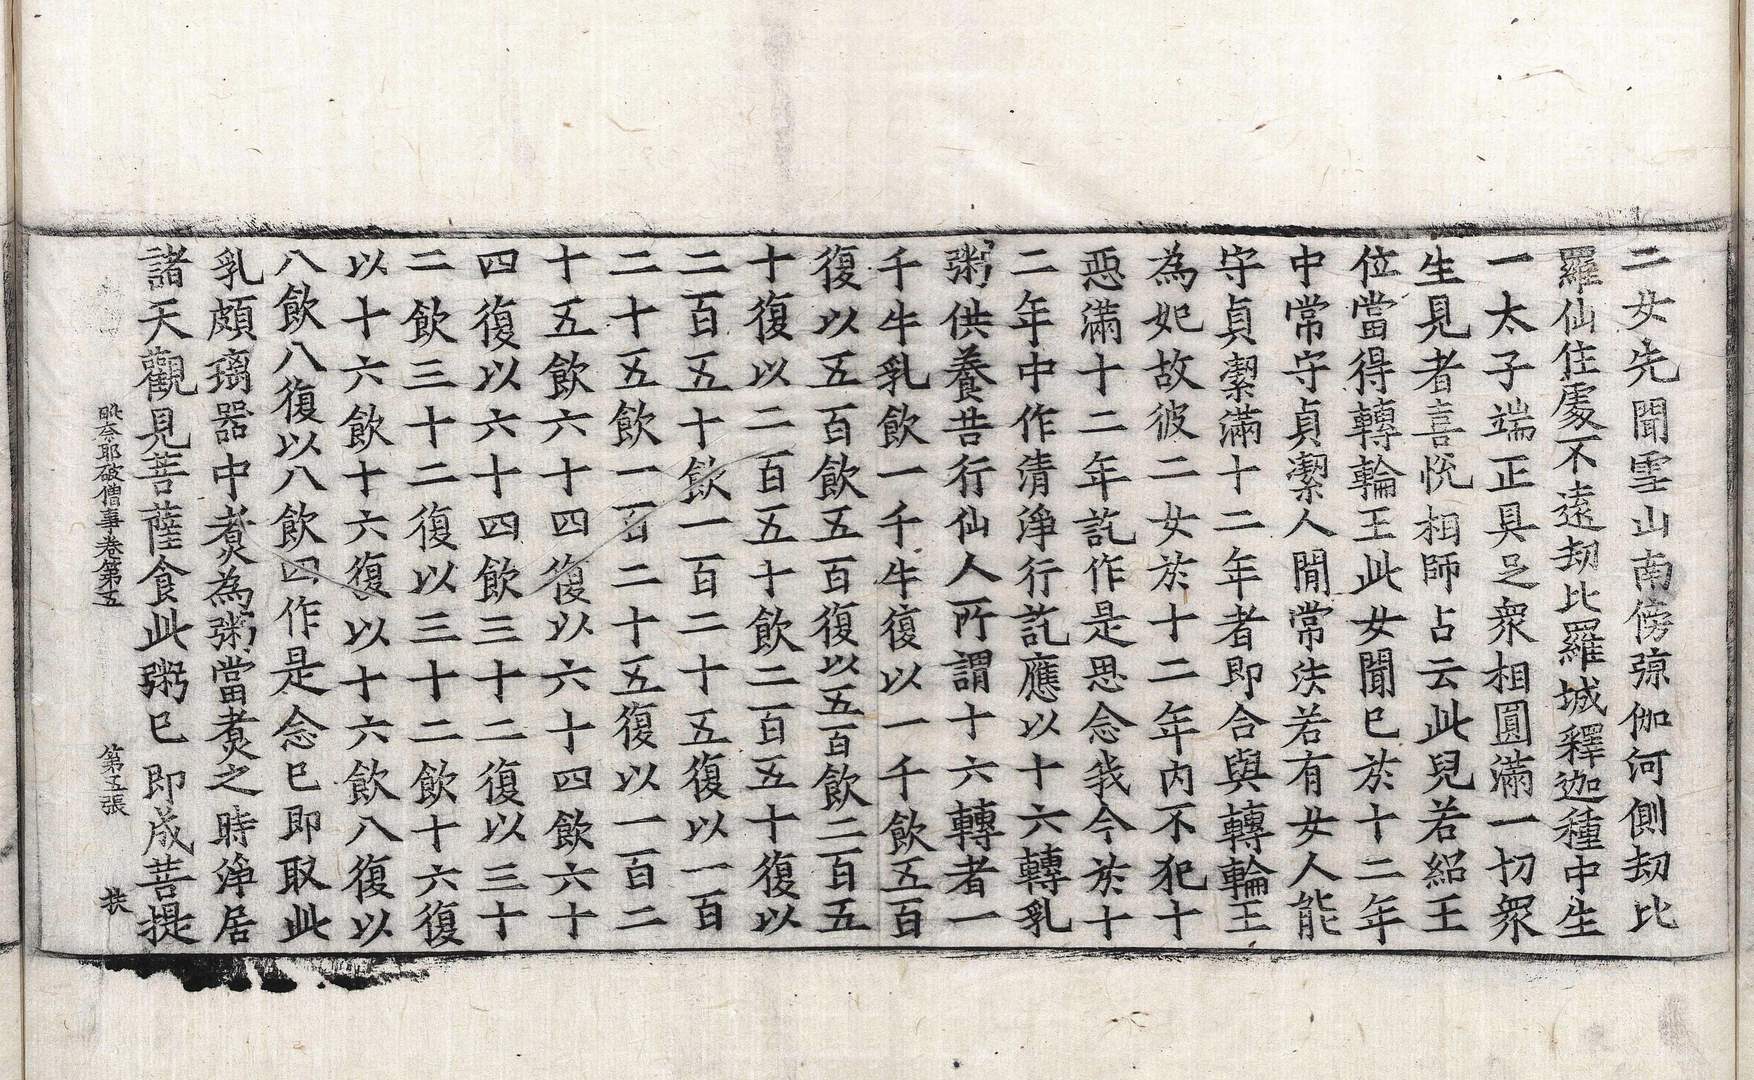 二女先聞雪山南傍弶伽河側劫比
羅仙住處不遠劫比羅城釋迦種中生
一太子端正具足衆相圓滿一切衆
生見者喜悅相師占云此兒若紹王
位當得轉輪王此女聞已於十二年
中常守貞潔人間常法若有女人能
守貞潔滿十二年者即合與轉輪王
為妃故彼二女於十二年內不犯十
惡滿十二年訖作是思念我今於十
二年中作清淨行訖應以十六轉乳
粥供養苦行仙人所謂十六轉者一
千牛乳飲一千牛復以一千飲五百
復以五百飲五百復以五百飲二百五
十復以二百五十飲二百五十復以
二百五十飲一百二十五復以一百
二十五飲一百二十五復以一百二
十五飲六十四復以六十四飲六十
四復以六十四飲三十二復以三十
二飲三十二復以三十二飲十六復
以十六飲十六復以十六飲八復以
八飲八復以八飲四作是念已即取此
乳頗璃器中煑為粥當煑之時淨居
諸天觀見菩薩食此粥已即成菩提
毗奈耶破僧事卷第五 第五張 扶